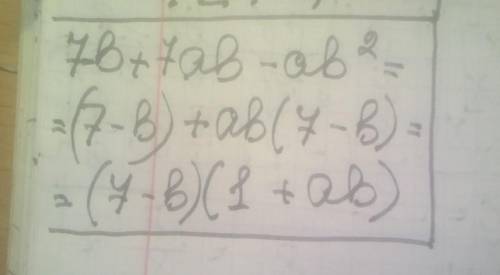 7-b+7ab-ab²=
=(7-b)+ab(7-b)=
=(7-b)(1+ab)